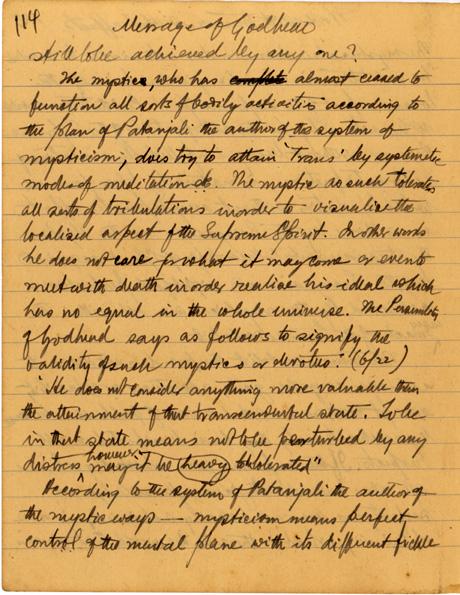 114
Message of Godhead
still to be achieved by any one?
The mystic, who has almost ceased to
function all sorts of bodily activities according to
the plan of Patanjali the author of the system of
mysticism, does try to attain 'Trans' by systematic
modes of meditation etc. The mystic as such tolerates
all sorts of tribulations in order to visualise the
localised aspect of the Supreme Spirit. In other words
he does not care for what it may come or even to
meet with death in order realise his ideal which
has no equal in the whole universe. The Personality
of Godhead says as follows to signify the
validity of such mystics or devotees." (6/22)
"He does not consider anything more valuable than
the attainment of that transcendental state. To be
in that state means not to be perturbed by any
distress however may it be heavy to tolerated"
According to the system of Patanjali the author of
the mystic ways — mysticism means perfect
control of the mental plane with its different fickle